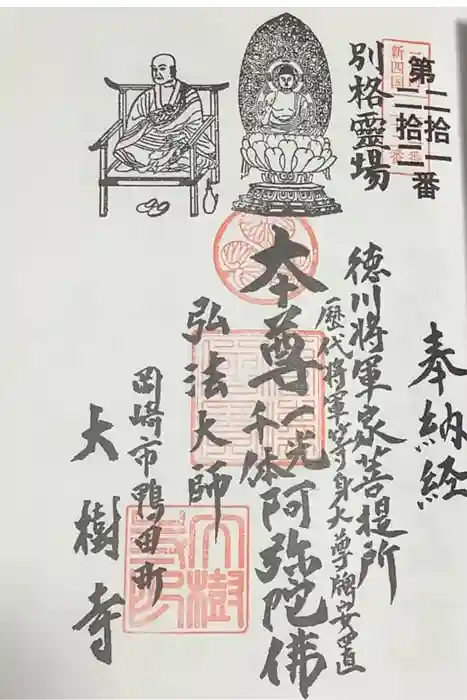 奉納経
第二拾一
二拾二番
新四国
番
別格靈場
徳川将軍家菩提所
歴代将軍等身大尊牌安置
本尊一光千体阿弥陀佛
弘法大師
岡崎市鴨田町
大樹寺
大樹寺印